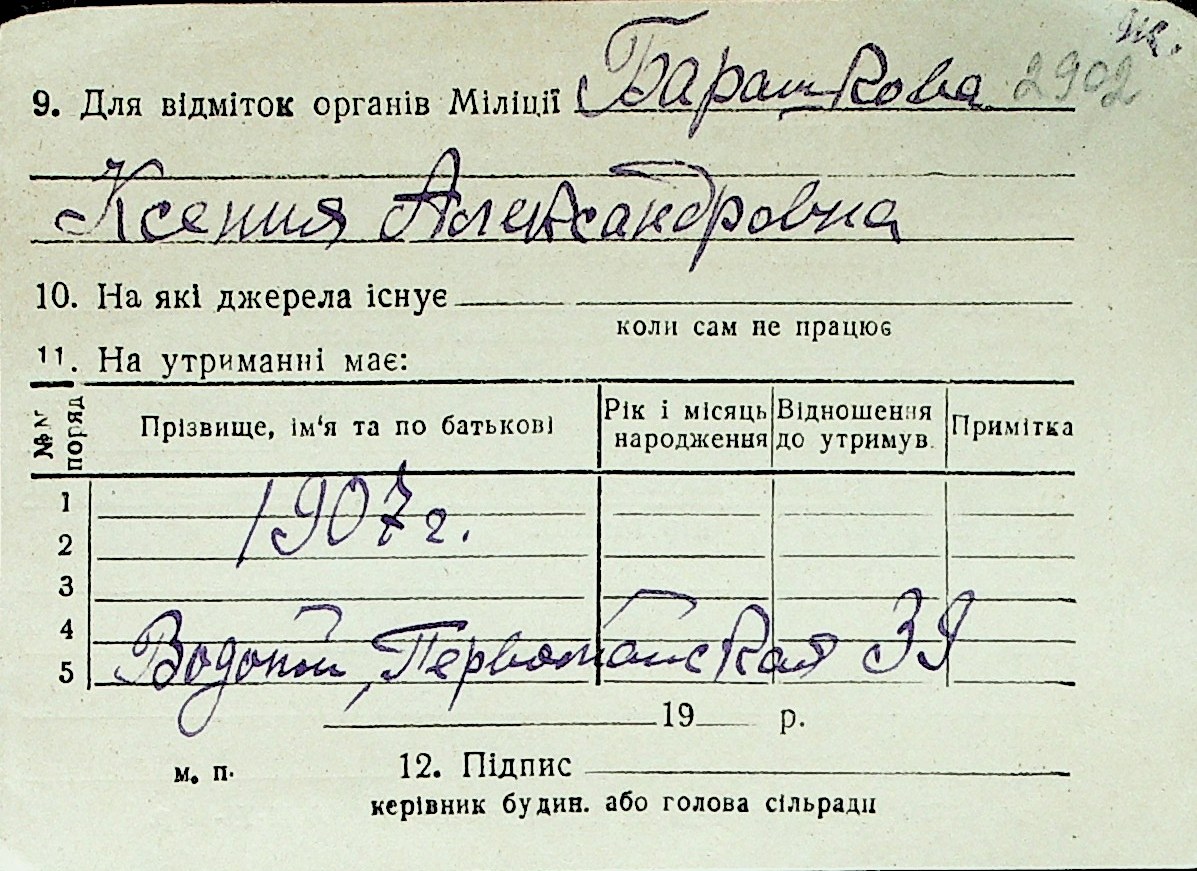 9. Для відміток органів Міліції Барашкова 2902
Ксения Александровна
10. На які джерела існує
коли сам не працює
11. На утриманні має:
№№ поряд Прізвище, ім'я та по батькові Рік і місяць народження Відношення до утримув. Примітка
1
1907 г.
2
3
4
Водопой, Первомайская 39
5
19 р.
м. п. 12. Підпис
керівник будин. або голова сільради